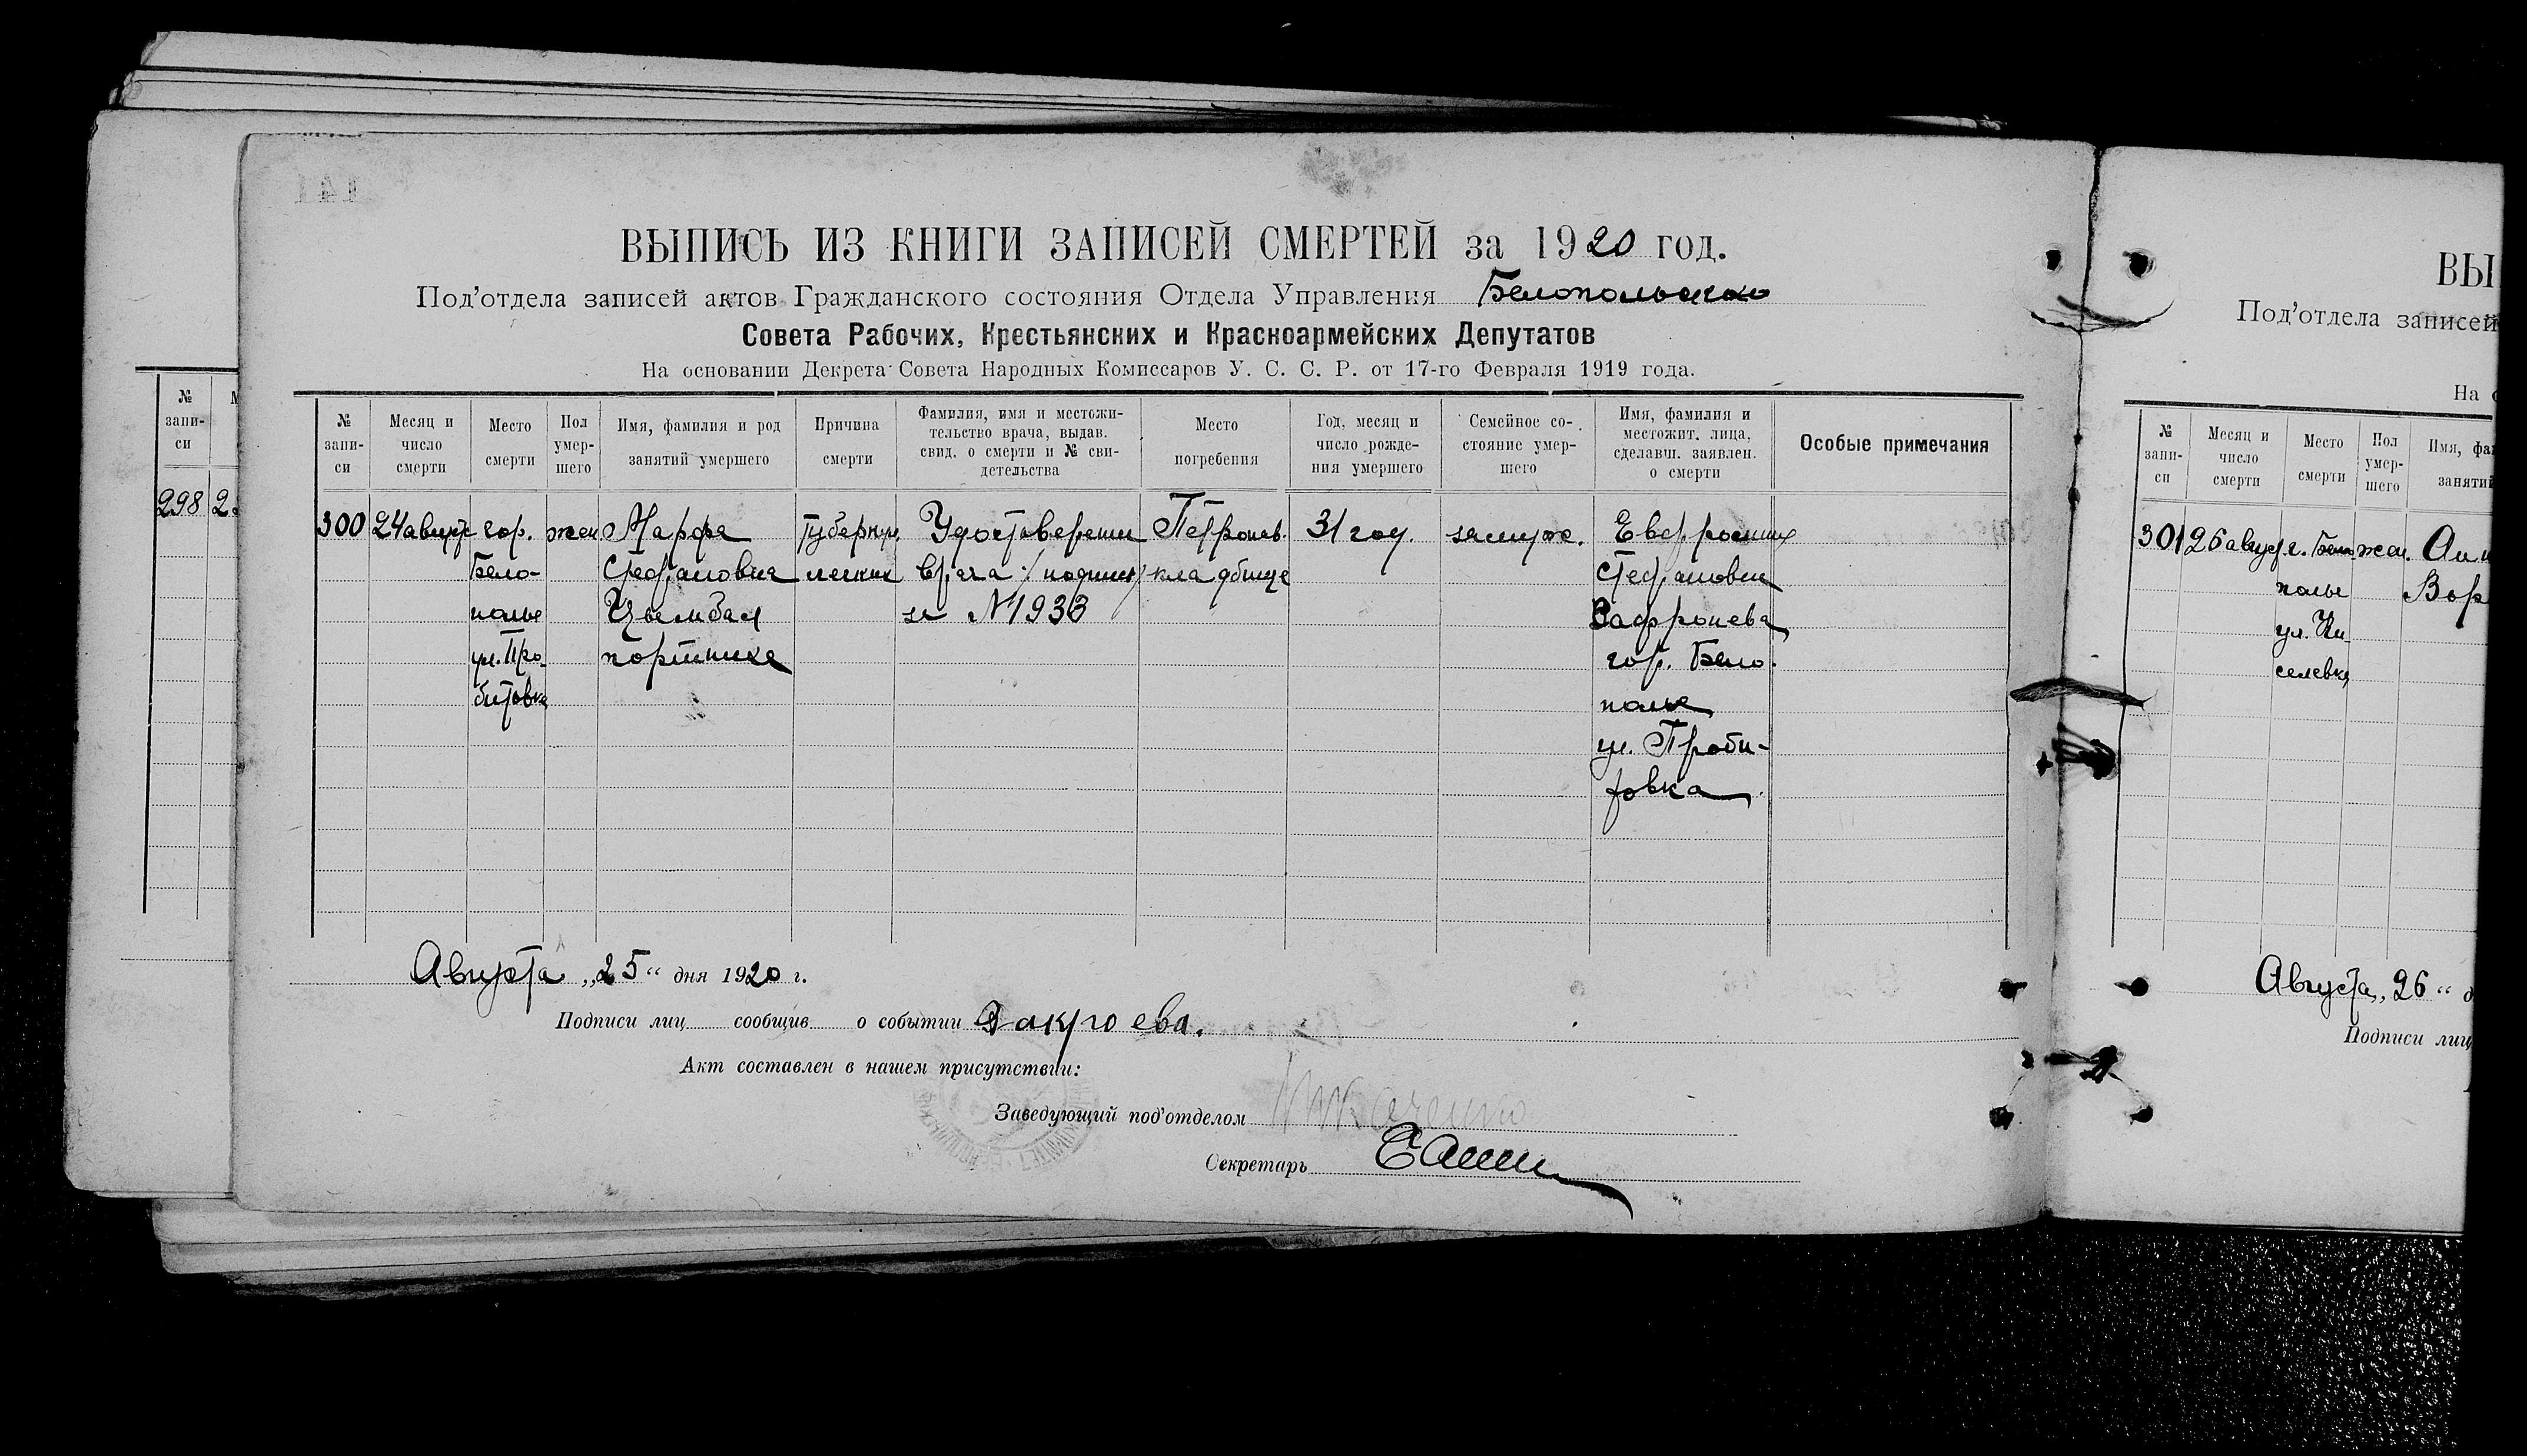 ВЫПИСЬ ИЗ КНИГИ ЗАПИСЕЙ СМЕРТЕЙ за 1920 год.
Под'отдела записей актов Гражданского состояния Отдела Управления Белопольского
Совета Рабочих, Крестьянских и Красноармейских Депутатов
На основании Декрета Совета Народных Комиссаров У. С. С. Р. от 17-го Февраля 1919 года.
№ запи-си
Месяц и число смерти
Место смерти
Пол умер-шего
Имя, фамилия и род занятий умершего
Причина смерти
Фамилия, имя и местожи-тельство врача, выдав. свид. о смерти и № сви-детельства
Место погребения
Год, месяц и число рожде-ния умершего
Семейное со-стояние умер-шего
Имя, фамилия и местожит. лица, сделавш. заявлен. о смерти
Особые примечания
300 24 август гор. жен Марфа туберкул. Удостоверени Петропав. 31 год. замуж. Евфросиния
Бело- Стефановна легких врача /подпись/ кладбище Стефановна
полье Цымбал за №1933
ул. Про- портниха гор. Бело-
битовка полье
ул. Проби-
товка
Августа „25“ дня 1920 г.
Подписи лиц сообщив о событии
Акт составлен в нашем присутствии:
Заведующий под'отделом Ткаченко
Секретарь
№ запи-си
298 2
ВЫ
Под'отдела записей
На о
№ запи-си
Месяц и число смерти
Место смерти
Пол умер-шего
Имя, фа
заняти
301 26 август г. Бело жен.
полье Вор
ул. Ки
селевка
Августа „26“ д
Подписи лиц